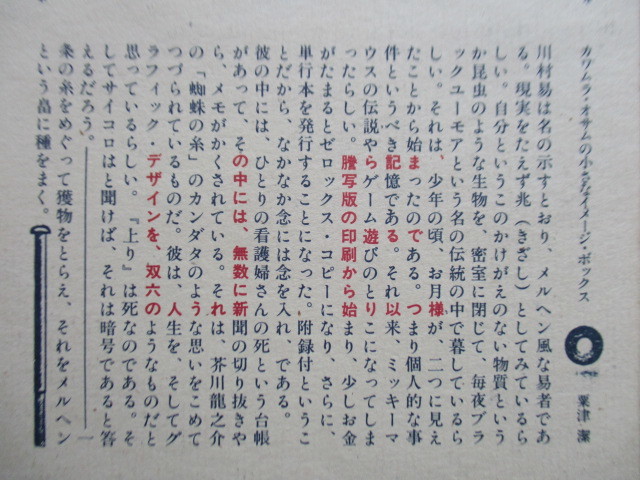 カワムラ・オサムの小さなイメージ・ボックス
粟津 潔
川村易は名の示すとおり、メルヘン風な易者であ
る。現実をたえず兆（きざし）としてみているら
しい。自分というこのかけがえのない物質という
か昆虫のような生物を、密室に閉じて、毎夜ブラ
ックユーモアという名の伝統の中で暮しているら
しい。それは、少年の頃、お月様が、二つに見え
たことから始まったのである。つまり個人的な事
件というべき記憶である。それ以来、ミッキーマ
ウスの伝説やらゲーム遊びのとりこになってしま
ったらしい。謄写版の印刷から始まり、少しお金
がたまるとゼロックス・コピーになり、さらに、
単行本を発行することになった。附録付というこ
とだから、なかなか念には念を入れ、である。
彼の中には、ひとりの看護婦さんの死という台帳
があって、その中には、無数に新聞の切り抜きや
ら、メモがかくされている。それは、芥川龍之介
の「蜘蛛の糸」のカンダタのような思いをこめて
つづられているものだ。彼は、人生を、そしてグ
ラフィック・デザインを、双六のようなものだと
思っているらしい。『上り』は死なのである。そ
してサイコロはと聞けば、それは暗号であると答
えるだろう。――一
条の糸をめぐって獲物をとらえ、それをメルヘン
という畠に種をまく。